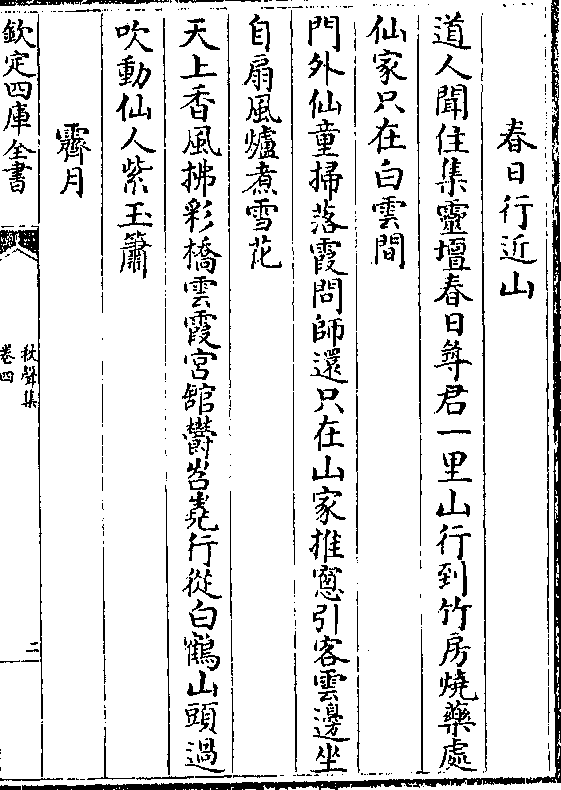 春日行近山
道人聞住集靈壇春日尋君一里山行到竹房燒藥處
仙家只在白雲間
門外仙童掃落霞問師還只在山家推窻引客雲邊坐
自扇風爐煮雪花
天上香風拂彩橋雲霞宮舘鬱岧嶤行從白鶴山頭過
吹動仙人紫玉簫
霽月
欽定四庫全書
秋聲集
卷四
二